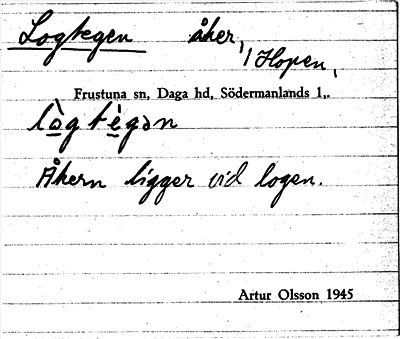 Logtegen åker,
i Hopen,
Frustuna sn, Daga hd, Södermanlands l.,
lògtégən
Åkern ligger vid logen.
Artur Olsson 1945